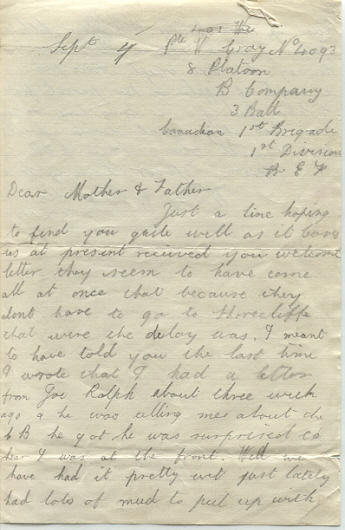 Sept 4 Pte V Gray No 4093
8 Platoon
B Company
3 Batt
Canadian 1st Brigade
1st Division
B E F
Dear Mother & Father
Just a line hoping
to find you quite well as it leaves
us at present received you welcome
letter they seem to have come
all at once that because they
dont have to go to Shorecliffe
that were the delay was. I meant
to have told you the last time
I wrote that I had a letter
from Joe Ralph about three week
ago & he was telling me about
he got he was surprised to
hear I was at the front. Well we
have had it pretty wet just lately
had lots of mud to put up with